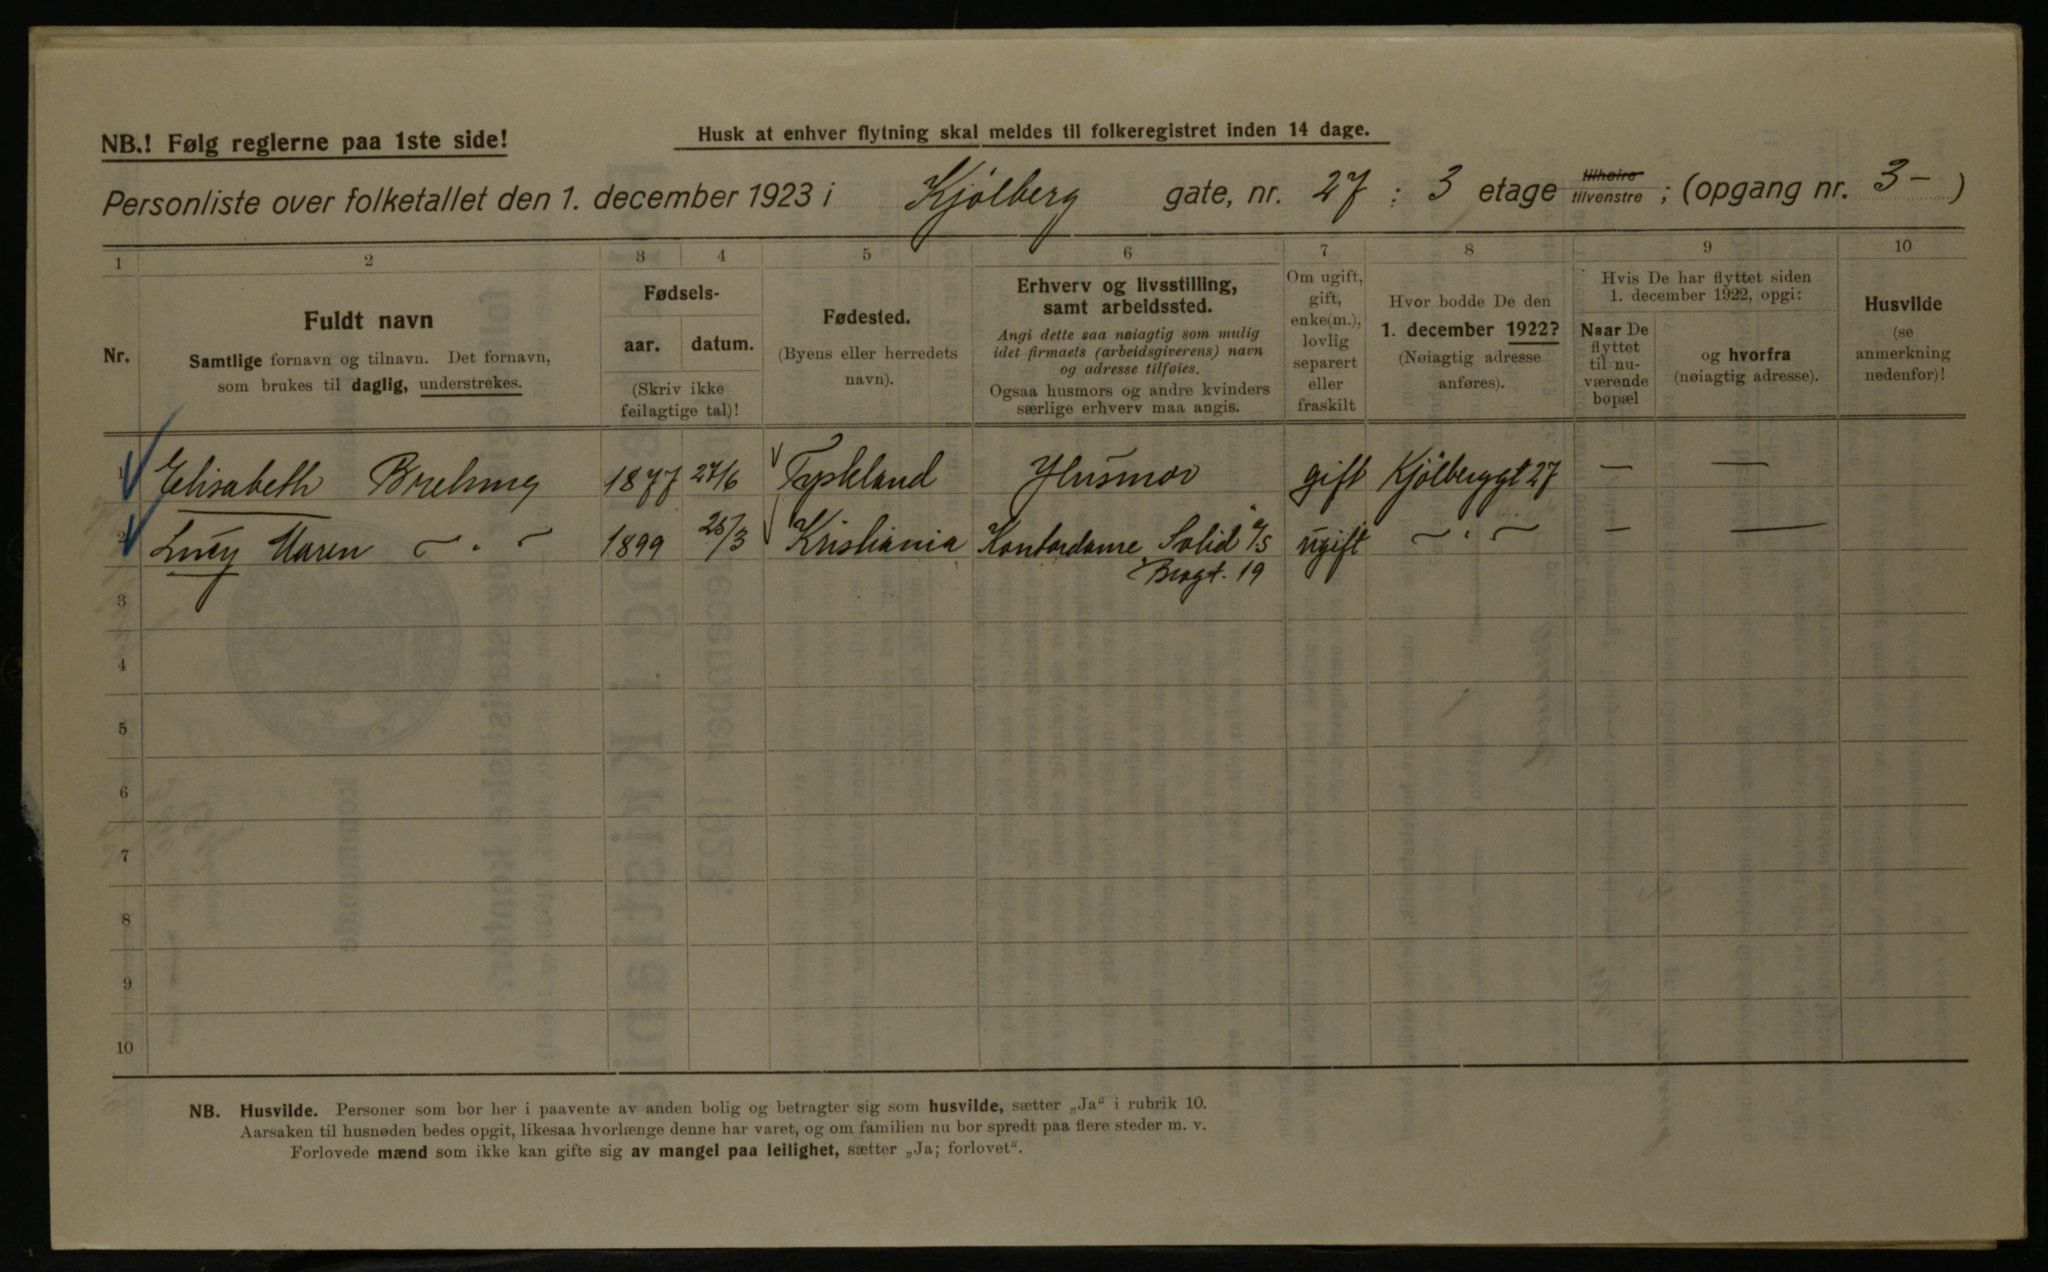 NB.! Følg reglerne paa 1ste side!
Husk at enhver flytning skal meldes til folkeregistret inden 14 dage.
Personliste over folketallet den 1. december 1923 i Kjølberg gate, nr. 27 : 3 etage tilhøire tilvenstre ; (opgang nr. 3 - )
1 2 3 4 5 6 7 8 9 10
Nr.
Fuldt navn
Samtlige fornavn og tilnavn. Det fornavn,
som brukes til daglig, understrekes.
Fødsels-
aar. datum.
(Skriv ikke
feilagtige tal)!
Fødested.
(Byens eller herredets
navn).
Erhverv og livsstilling,
samt arbeidssted.
Angi dette saa nøiagtig som mulig
idet firmaets (arbeidsgiverens) navn
og adresse tilføies.
Ogsaa husmors og andre kvinders
særlige erhverv maa angis.
Om ugift,
gift,
enke(m.),
lovlig
separert
eller
fraskilt
Hvor bodde De den
1. december 1922?
(Nøiagtig adresse
anføres).
Hvis De har flyttet siden
1. december 1922, opgi:
Naar De
flyttet
til nu-
værende
bopæl
og hvorfra
(nøiagtig adresse).
Husvilde
(se
anmerkning
nedenfor)!
1 Elisabeth 1877 27/6 Tyskland Husmor gift Kjølberggt 27 — —
2 Lucy Maren — " — 1899 25/3 Kristiania Kontordame Solid A/S ugift — " — — —
19
3
4
5
6
7
8
9
10
NB. Husvilde. Personer som bor her i paavente av anden bolig og betragter sig som husvilde, sætter „Ja" i rubrik 10.
Aarsaken til husnøden bedes opgit, likesaa hvorlænge denne har varet, og om familien nu bor spredt paa flere steder m. v.
Forlovede mænd som ikke kan gifte sig av mangel paa leilighet, sætter „Ja; forlovet".